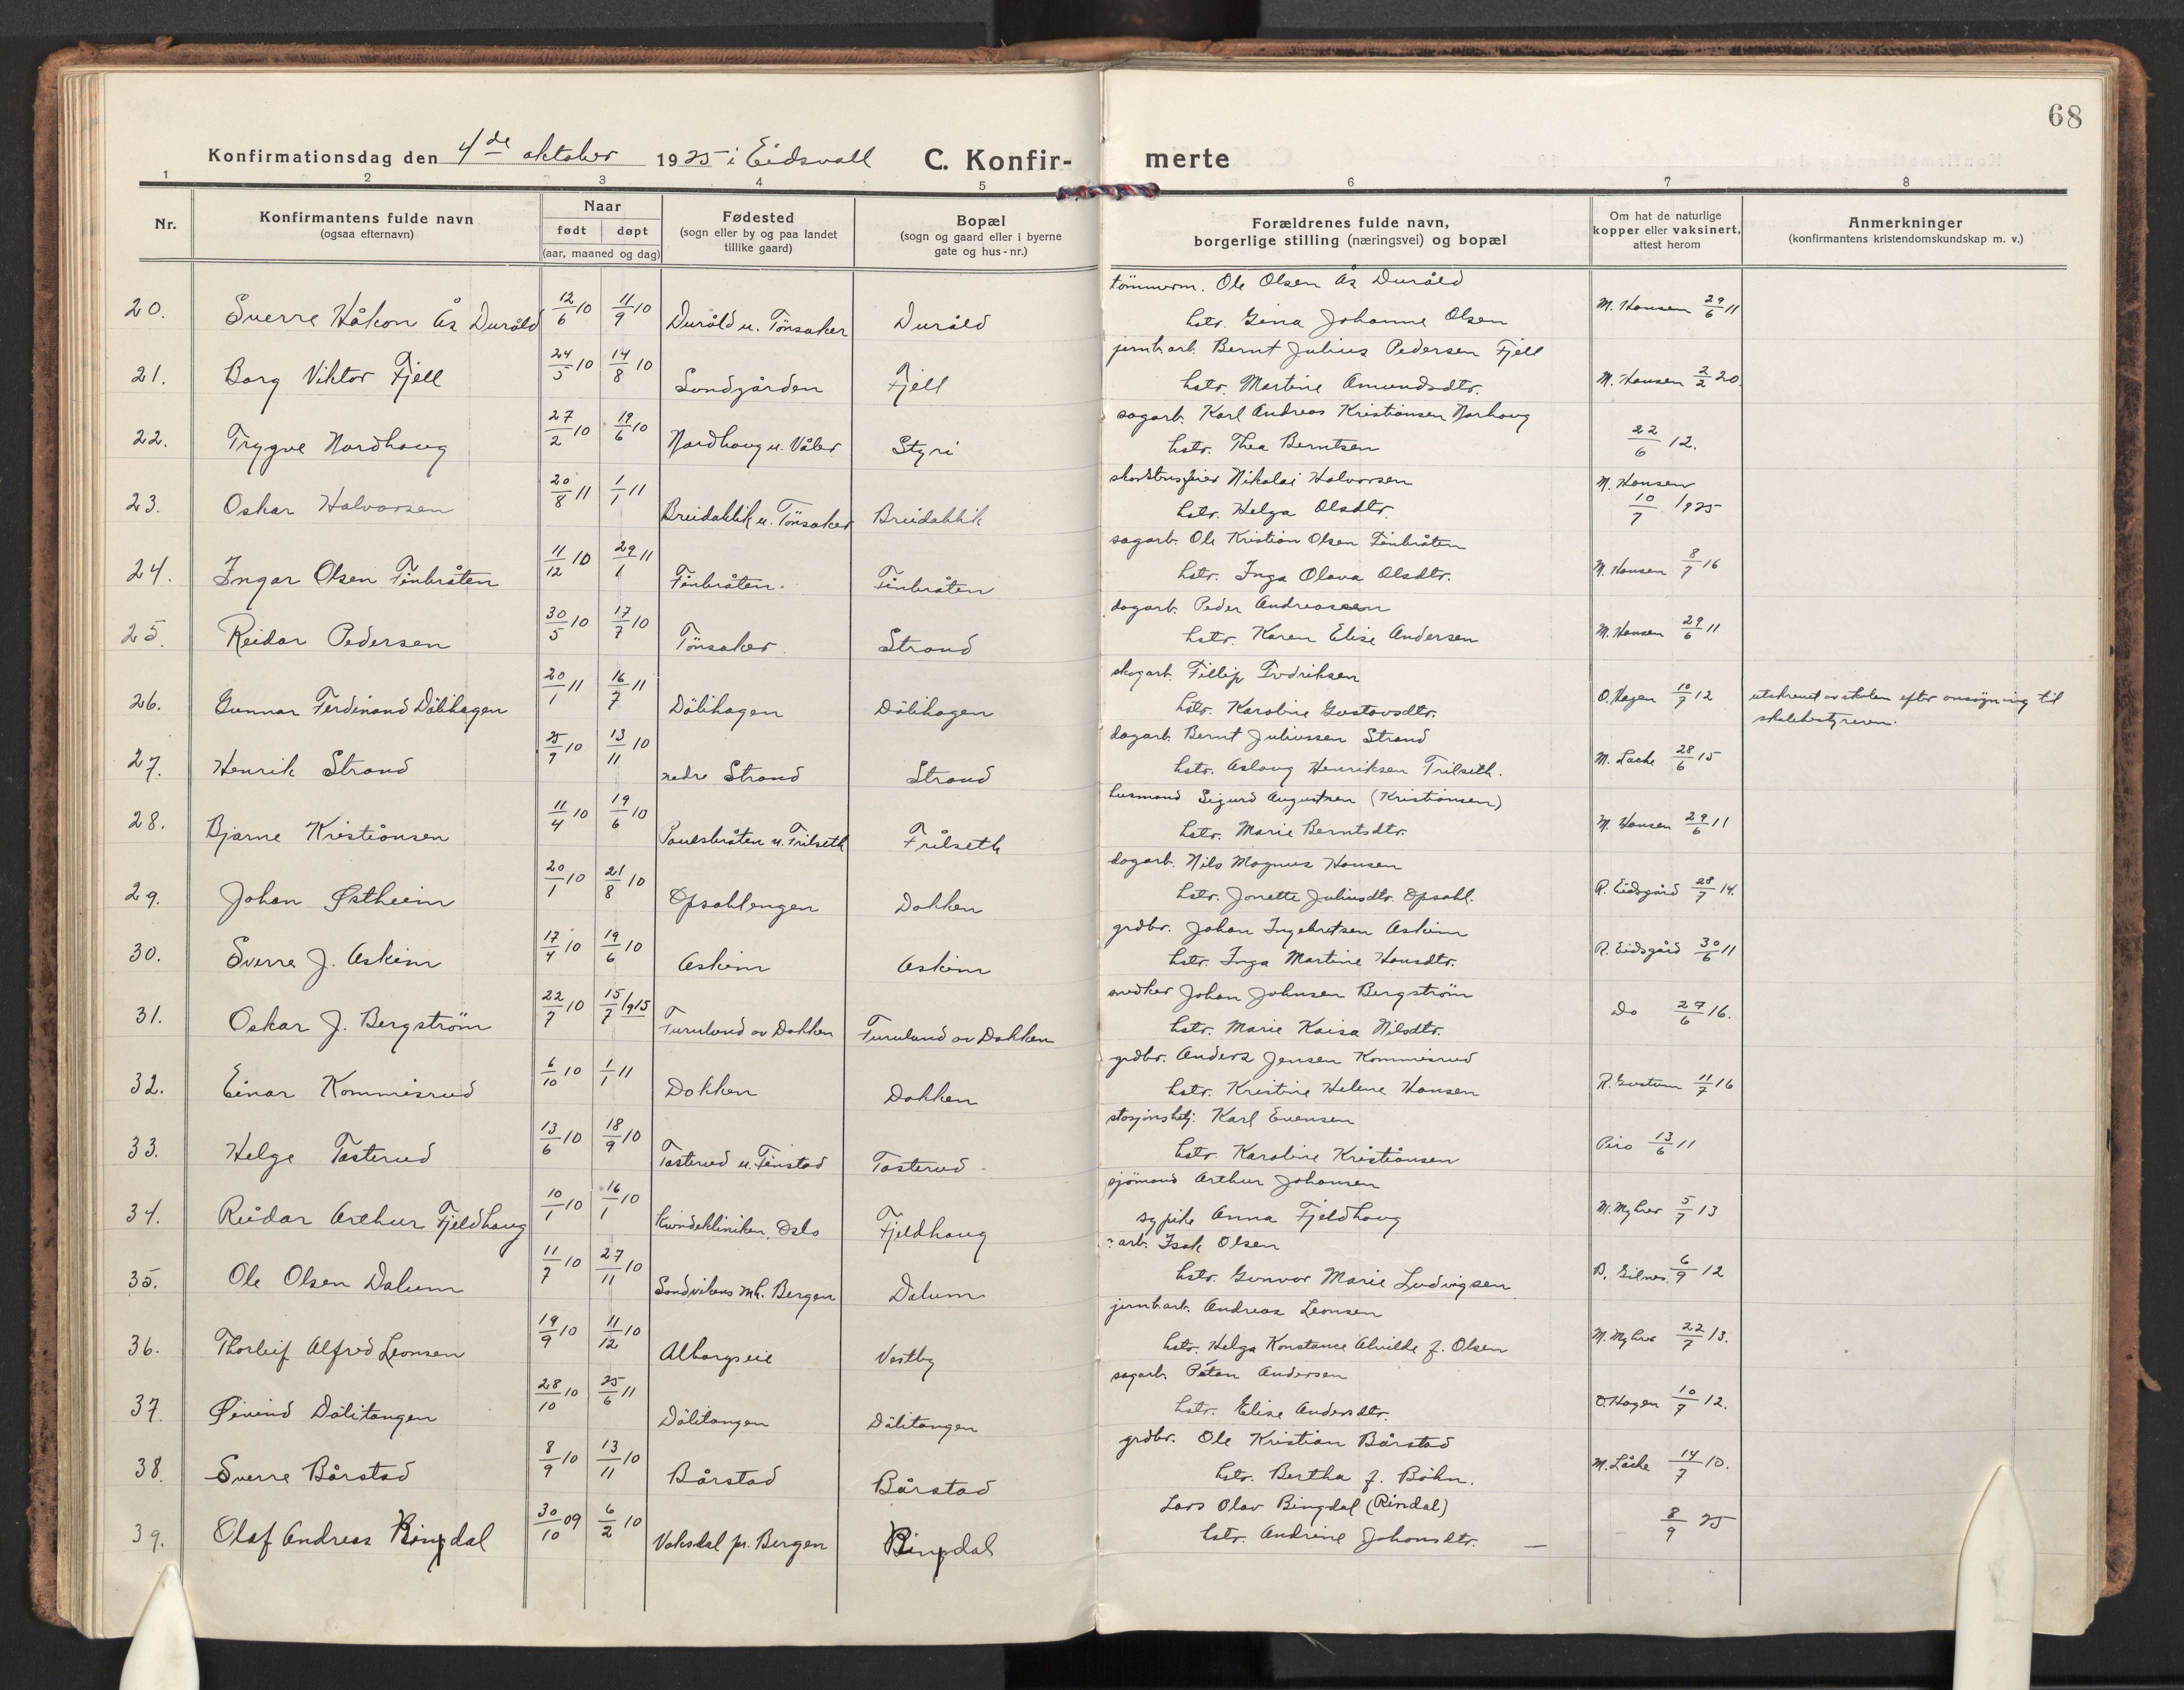 68
Konfirmationsdag den 4de oktober 1925 i Eidsvoll C. Konfir- merte
1 2 3 4 5 6 7 8
Nr. Konfirmantens fulde navn (ogsaa efternavn) Naar født døpt (aar, maaned og dag) Fødested (sogn eller by og paa landet tillike gaard) Bopæl (sogn og gaard eller i byerne gate og hus-nr.) Forældrenes fulde navn, borgerlige stilling (næringsvei) og bopæl Om hat de naturlige kopper eller vaksinert, attest herom Anmerkninger (konfirmantens kristendomskundskap m. v.)
20. Sverre Håkon Ås Duråld 12/6 10 11/9 10 Duråld u. Tönsaker Duråld tömmerm. Ole Olsen Ås Duråld
hstr. Gina Johanne Olsen M. Hansen 29/6 11
21. Borg Viktor Fjell 24/5 10 14/8 10 Sundgården Fjell jernb.arb. Bernt Julius Pedersen Fjell
hstr. Martine Amundsdtr. M. Hansen 2/2 20.
22. Trygve Nordhoug 27/2 10 19/6 10 Nordhoug u. Våler Styri sagarb. Karl Andreas Kristiansen Norhoug
hstr. Thea Berntsen 22/6 12.
23. Oskar Halvorsen 20/8 11 1/1 11 Breidablik u. Tönsaker Breidablik Nikolai Halvorsen
hstr. Helga Olsdtr. M. Hansen 10/7 1925
24. Ingar Olsen Finbråten 11/12 10 29/1 11 Finbråten. Finbråten sagarb. Ole Kristian Olsen Finbråten
hstr. Inga Olava Olsdtr. M. Hansen 8/7 16
25. Reidar Pedersen 30/5 10 17/7 10 Tönsaker. Strand dagarb. Peder Andreassen
hstr. Karen Elise Andersen M. Hansen 29/6 11
26. Gunnar Ferdinand Dölihagen 20/1 11 16/7 11 Dölihagen Dölihagen skogarb. Fillip Fredriksen
hstr. Karoline Gustavsdtr. O. Hagen 10/7 12 utskrevet av skolen efter ansögning til
skolestyreren.
27. Henrik Strand 25/9 10 13/11 10 nedre Strand Strand dagarb. Bernt Juliussen Strand
hstr. Aslaug Henriksen Trilseth. M. Låche 28/6 15
28. Bjarne Kristiansen 11/4 10 19/6 10 Paulsbråten u. Trilseth Trilseth husmand Sigurd Augustsen (Kristiansen)
hstr. Marie Berntsdtr. M. Hansen 29/6 11
29. Johan Østheim 20/1 10 21/8 10 Opsahlengen Dokken dagarb. Nils Magnus Hansen
hstr. Jonette Juliusdtr. Opsahl. R. Eidsgård 28/7 14.
30. Sverre J. Askim 17/4 10 19/6 10 Askim Askim grdbr. Johan Ingebretsen Askim
hstr. Inga Martine Hansdtr. R. Eidsgård 30/6 11
31. Oskar J. Bergström 22/7 10 15/7 1915 Furulund av Dokken Furulund av Dokken snedker Johan Johnsen Bergström
hstr. Marie Kaisa Nilsdtr. Do 29/6 16.
32. Einar Kommisrud 6/10 10 1/1 11 Dokken Dokken grdbr. Anders Jensen Kommisrud
hstr. Kristine Helene Hansen 11/7 16
33. Helge Tosterud 13/6 10 18/9 10 Tosterud u. Finstad Tosterud stasjonsbetj. Karl Evensen
hstr. Karoline Kristiansen Piro 13/6 11
34. Reidar Arthur Fjeldhoug 10/1 10 16/1 10 Kvindekliniken, Oslo Fjeldhoug sjömand Arthur Johansen
sypike Anna Fjeldhoug M. Myhrer 5/7 13
35. Ole Olsen Dalum 11/7 10 27/11 10 Sandvikens mh. Bergen Dalum arb. Isak Olsen
hstr. Gunvor Marie Ludvigsen B. Gilnes. 6/9 12
36. Thorleif Alfred Leonsen 19/9 10 11/12 10 Alhargseie Vestby jernb.arb. Andreas Leonsen
hstr. Helga Konstance Alvilde f. Olsen M. Myhrer 22/7 13.
37. Øivind Dölitangen 28/10 10 25/6 11 Dölitangen Dölitangen sagarb. Petter Andersen
hstr. Elise Andersdtr. O. Hagen 10/7 12.
38. Sverre Bårstad 8/9 10 13/11 10 Bårstad Bårstad grdbr. Ole Kristian Bårstad
hstr. Bertha f. Böhn. M. Låche 14/7 10.
39. Olaf Andreas Ringdal 30/10 09 6/2 10 Vaksdal pr. Bergen Ringdal Lars Olav Bingdal (Rindal)
hstr. Andrine Johansdtr. — 8/9 25